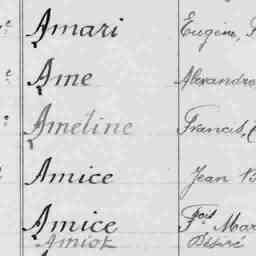 Amari Eugène,
Ame Alexandre
Ameline Francis,
Amice Jean
Amice Fçois Mar
Amiot Désiré